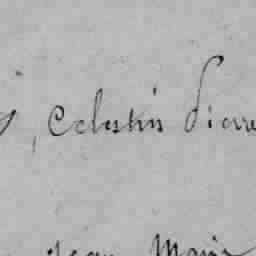 , Celestin Pierre
Jean Marie